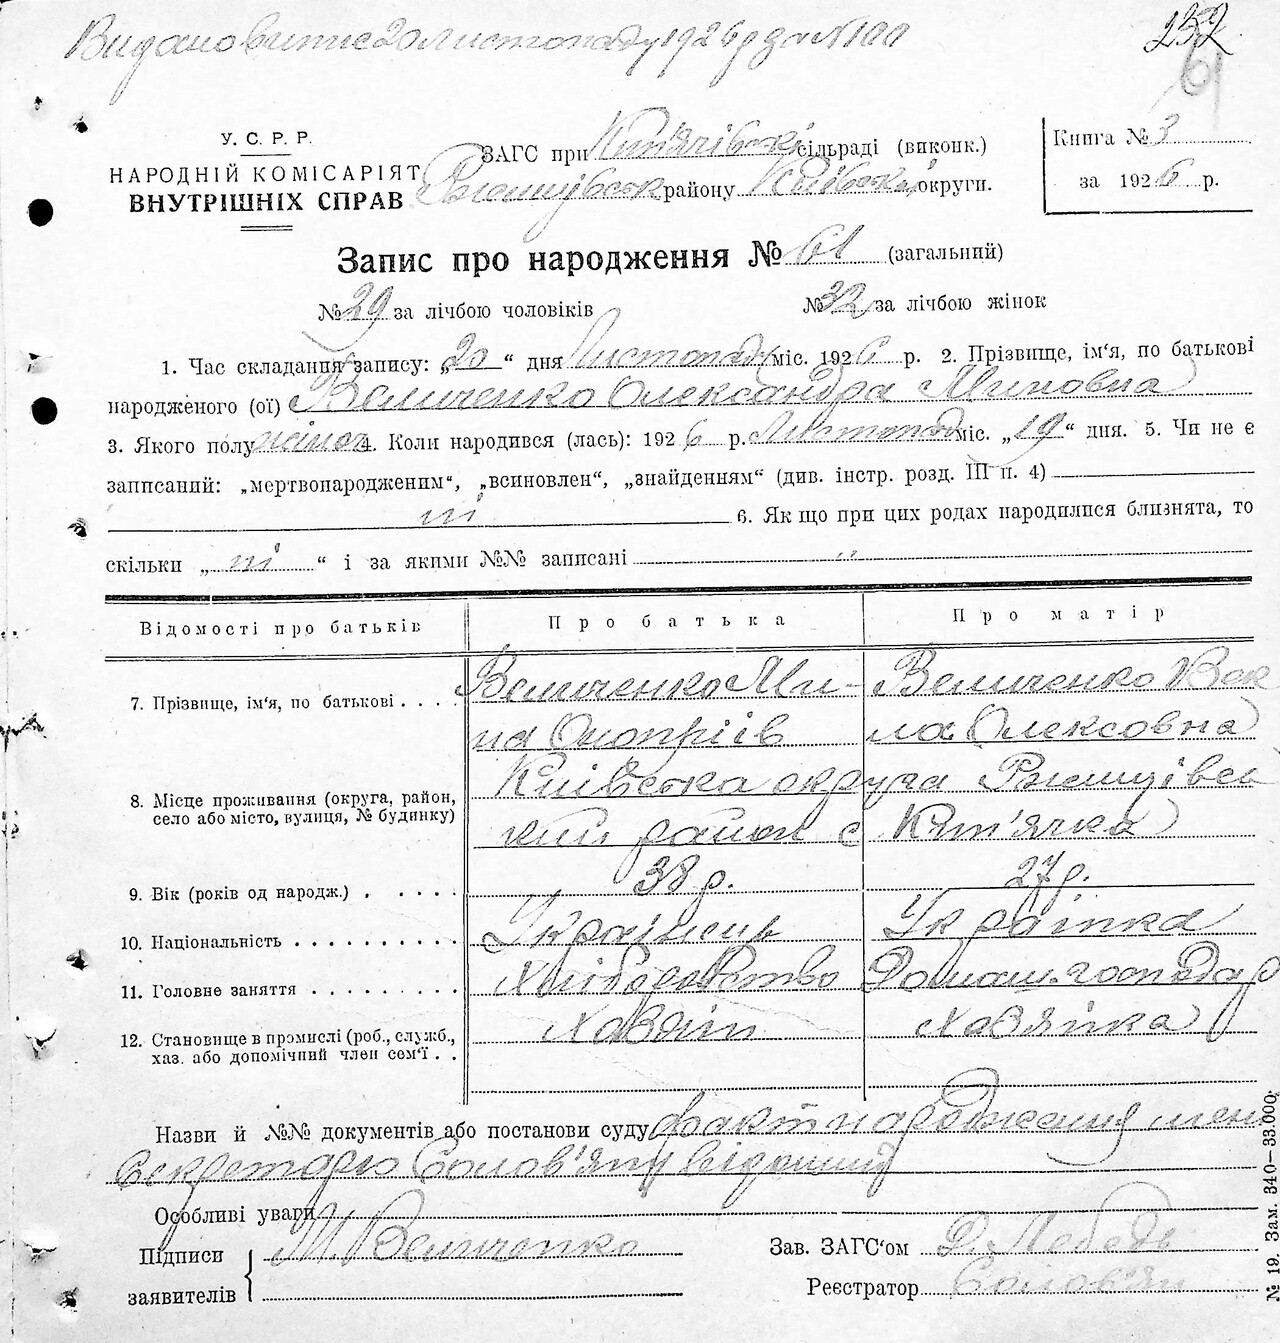 Видано витис 20 листопаду 1926 р за №100
252
61
У. С. Р. Р.
НАРОДНІЙ КОМІСАРІЯТ
ВНУТРІШНІХ СПРАВ
ЗАГС при сільраді (виконк.)
Ржищівськ району Київськ округи.
Книга № 3
за 1926 р.
Запис про народження № 61 (загальний)
№ 29 за лічбою чоловіків № 32 за лічбою жінок
1. Час складання запису: „20“ дня Листопаду міс. 1926 р. 2. Прізвище, ім'я, по батькові
народженого (ої) Величенко Олександра Миновна
3. Якого полу жіноч 4. Коли народився (лась): 1926 р. Листопад міс. „19“ дня. 5. Чи не є
записаний: „мертвонародженим“, „всиновлен“, „знайденням“ (див. інстр. розд. III п. 4)
ні 6. Якщо при цих родах народилися близнята, то
скільки „ні“ і за якими №№ записані "
Відомості про батьків Про батька Про матір
7. Прізвище, ім'я, по батькові . . . . Величенко Ми- Величенко Век
на Оноприів ла Олексовна
8. Місце проживання (округа, район, село або місто, вулиця, № будинку) Київська округа Ржищівсь
кий район с
9. Вік (років од народж.) . . . . . 38 р. 27 р.
10. Національність . . . . . . . . . . Українець Українка
11. Головне заняття . . . . . . . . . Хліборобство Домаш. господар
12. Становище в промислі (роб., служб., хаз. або допомічний член сем'ї . . Хазяін Хазяйка
Назви й №№ документів або постанови суду факт народження мені
секретарю Солов'яну відомий
Особливі уваги
Підписи М. Величенко Зав. ЗАГС'ом Д. Лебедь
заявителів Реєстратор Солов'ян
№ 19. Зам. 340—33.000.